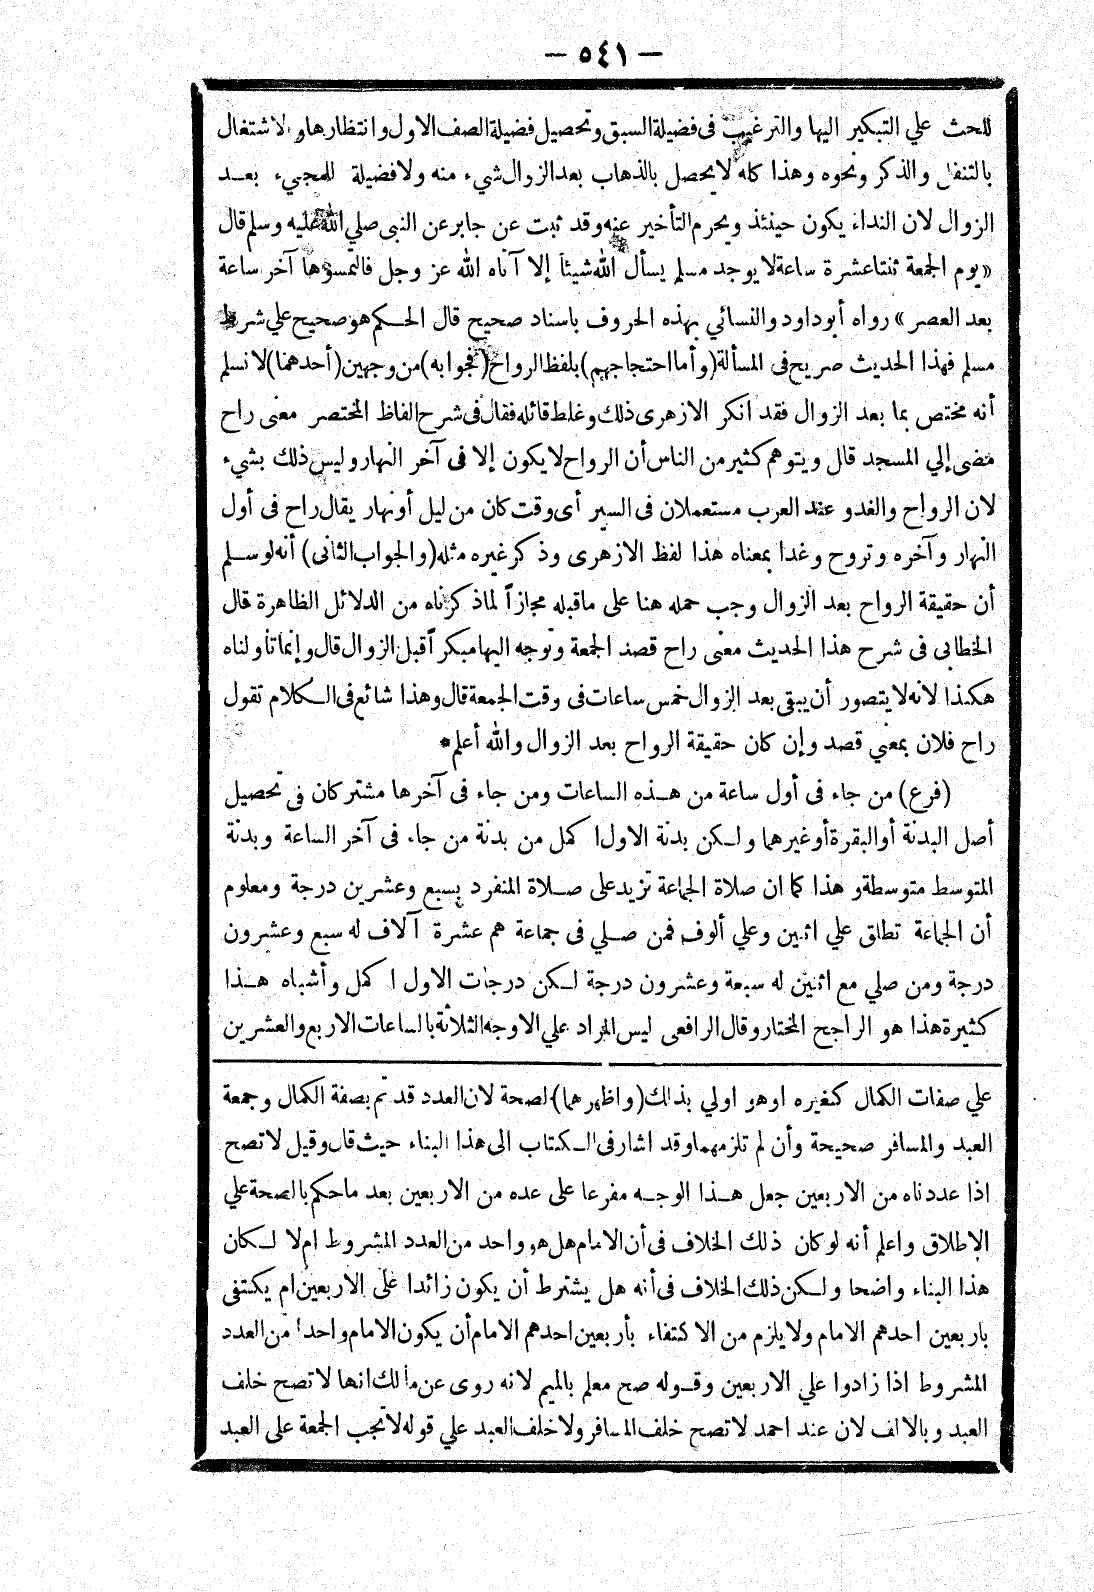 — ٥٤١ —
للحث علي التبكير اليها والترغيب فى فضيلة السبق وتحصيل فضيلة الصف الاول وانتظارها والاشتغال
بالتنفل والذكر ونحوه وهذا كله لا يحصل بالذهاب بعد الزوال شيء منه ولا فضيلة للمجيء بعد
الزوال لان النداء يكون حينئذ ويحرم التأخير عنه وقد ثبت عن جابر عن النبى صلي الله عليه وسلم قال
«يوم الجمعة ثنتا عشرة ساعة لا يوجد مسلم يسأل الله شيئا إلا آتاه الله عز وجل فالتمسوها آخر ساعة
بعد العصر» رواه أبو داود والنسائي بهذه الحروف باسناد صحيح قال الحكم هو صحيح علي شرط
مسلم فهذا الحديث صريح فى المسألة (وأما احتجاجهم) بلفظ الرواح (فجوابه) من وجهين (أحدهما) لا نسلم
أنه مختص بما بعد الزوال فقد انكر الازهرى ذلك وغلط قائله فقال فى شرح الفاظ المختصر معنى راح
مضى إلي المسجد قال ويتوهم كثير من الناس أن الرواح لا يكون إلا فى آخر النهار وليس ذلك بشيء
لان الرواح والغدو عند العرب مستعملان فى السير أى وقت كان من ليل أو نهار يقال راح فى أول
النهار وآخره وتروح وغدا بمعناه هذا لفظ الازهرى وذكر غيره مثله (والجواب الثانى) أنه لو سلم
أن حقيقة الرواح بعد الزوال وجب حمله هنا على ما قبله مجازاً لما ذكرناه من الدلائل الظاهرة قال
الخطابى فى شرح هذا الحديث معنى راح قصد الجمعة وتوجه اليها مبكراً قبل الزوال قال وإنما تأولناه
هكذا لانه لا يتصور أن يبقى بعد الزوال خمس ساعات فى وقت الجمعة قال وهذا شائع فى الكلام تقول
راح فلان بمعنى قصد وإن كان حقيقة الرواح بعد الزوال والله أعلم*
(فرع) من جاء فى أول ساعة من هذه الساعات ومن جاء فى آخرها مشتركان فى تحصيل
أصل البدنة أو البقرة أو غيرهما ولكن بدنة الاول اكمل من بدنة من جاء فى آخر الساعة وبدنة
المتوسط متوسطة وهذا كما ان صلاة الجماعة تزيد على صلاة المنفرد بسبع وعشرين درجة ومعلوم
أن الجماعة تطلق علي اثنين وعلي ألوف فمن صلي فى جماعة هم عشرة آلاف له سبع وعشرون
درجة ومن صلي مع اثنين له سبعة وعشرون درجة لكن درجات الاول اكمل وأشباه هذا
كثيرة هذا هو الراجح المختار وقال الرافعى ليس المراد علي الاوجه الثلاثة بالساعات الاربع والعشرين
علي صفات الكمال كغيره او هو اولي بذلك (واظهرهما) لصحة لان العدد قد تم بصفة الكمال وجمعة
العبد والمسافر صحيحة وأن لم تلزمهما وقد اشار فى الكتاب الى هذا البناء حيث قال وقيل لا تصح
اذا عددناه من الاربعين جعل هذا الوجه مفرعا على عده من الاربعين بعد ما حكم بالصحة علي
الاطلاق واعلم أنه لو كان ذلك الخلاف فى أن الامام هل هو واحد من العدد المشروط ام لا لكان
هذا البناء واضحا ولكن ذلك الخلاف فى أنه هل يشترط أن يكون زائدا على الاربعين ام يكتفى
باربعين احدهم الامام ولا يلزم من الاكتفاء بأربعين احدهم الامام أن يكون الامام واحدا من العدد
المشروط اذا زادوا علي الاربعين وقوله صح معلم بالميم لانه روى عن مالك انها لا تصح خلف
العبد وبالالف لان عند احمد لا تصح خلف المسافر ولا خلف العبد علي قوله لا تجب الجمعة على العبد